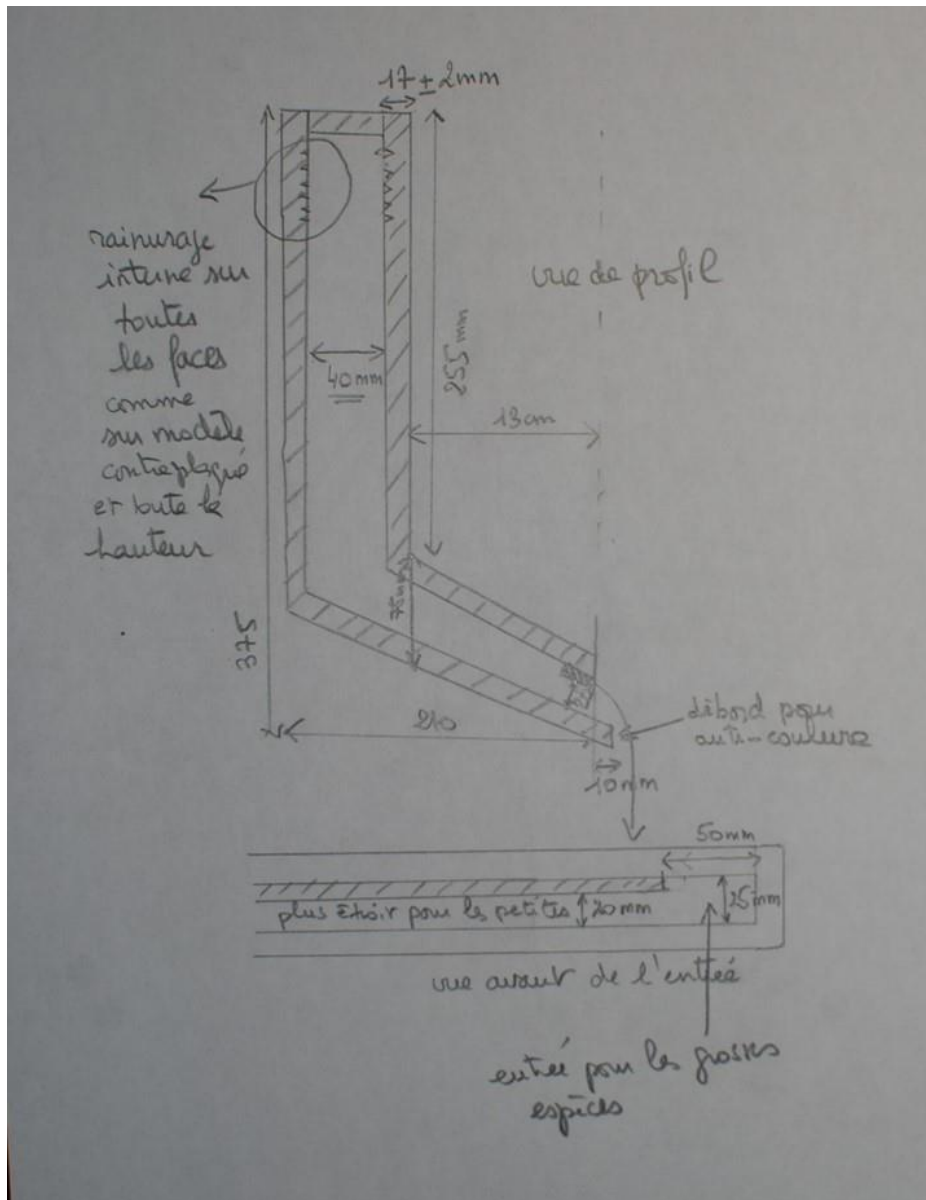 17 ± 2mm
rainurage
interne sur
toutes
les faces
comme
sur modèle
contreplaqué
et toute la
hauteur
vue de profil
40mm
255mm
13cm
75mm
375
210
débord pour
anti-coulure
10mm
50mm
25mm
plus étroit pour les petites 20mm
vue avant de l'entrée
entrée pour les grosses
espèces